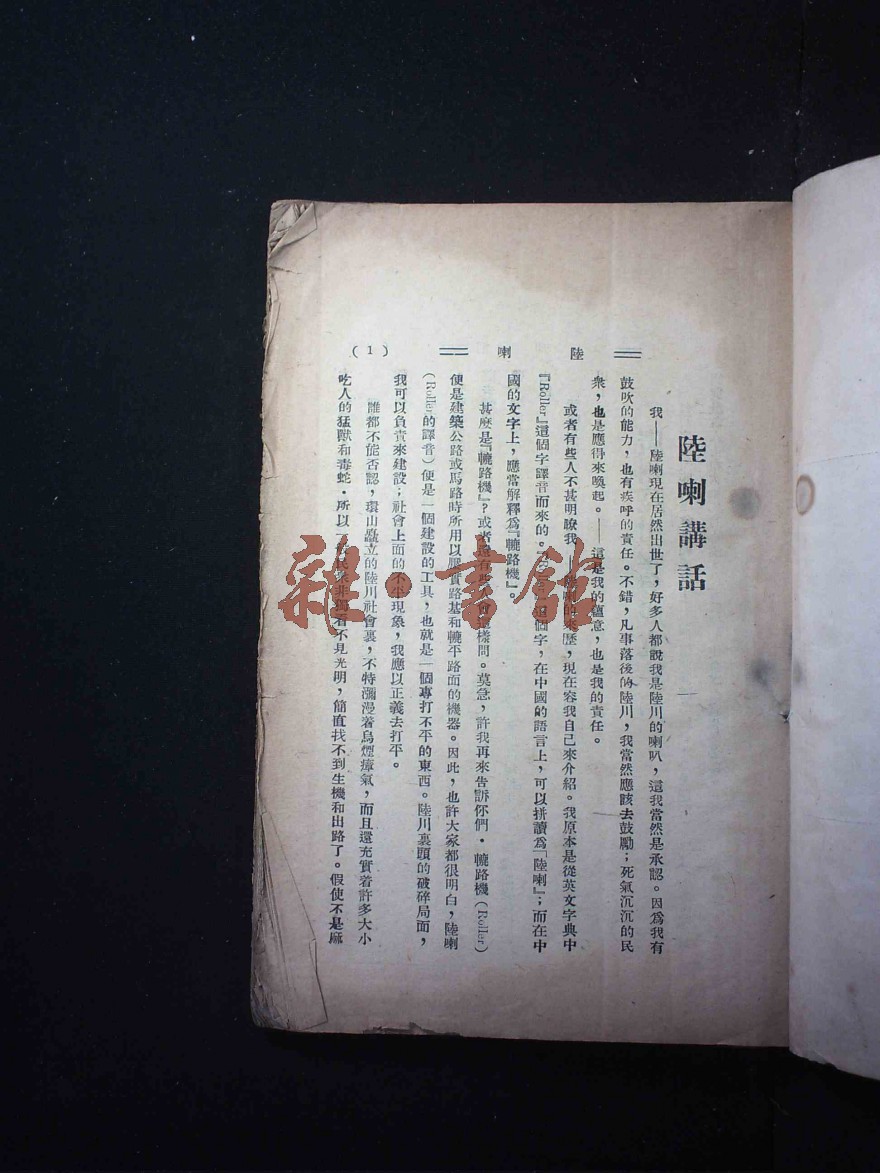 陸喇講話
我——陸喇現在居然出世了，好多人都說我是陸川的喇叭，這我當然是承認。因爲我有
鼓吹的能力，也有疾呼的責任。不錯，凡事落後的陸川，我當然應該去鼓勵；死氣沉沉的民
衆，也是應得來喚起。——這是我的蘊意，也是我的責任。
或者有些人不甚明瞭我——陸喇的來歷，現在容我自己來介紹。我原本是從英文字典中
『Roller』這個字譯音而來的。個字，在中國的語言上，可以拼讀爲「陸喇』；而在中
國的文字上，應當解釋爲『轆路機』。
甚麽是『轆路機』？或者還有些人會這樣問。莫急，許我再來告訴你們．轆路機（Roller）
便是建築公路或馬路時所用以壓實路基和轆平路面的機器。因此，也許大家都很明白，陸喇
（Roller的譯音）便是一個建設的工具，也就是一個專打不平的東西。陸川裏頭的破碎局面，
我可以負責來建設；社會上面的不平現象，我應以正義去打平。
誰都不能否認，環山矗立的陸川社會裏，不特瀰漫着烏煙瘴氣，而且還充實着許多大小
吃人的猛獸和毒蛇．所以民衆非獨看不見光明，簡直找不到生機和出路了。假使不是麻
陸喇
（1）
雜·書館